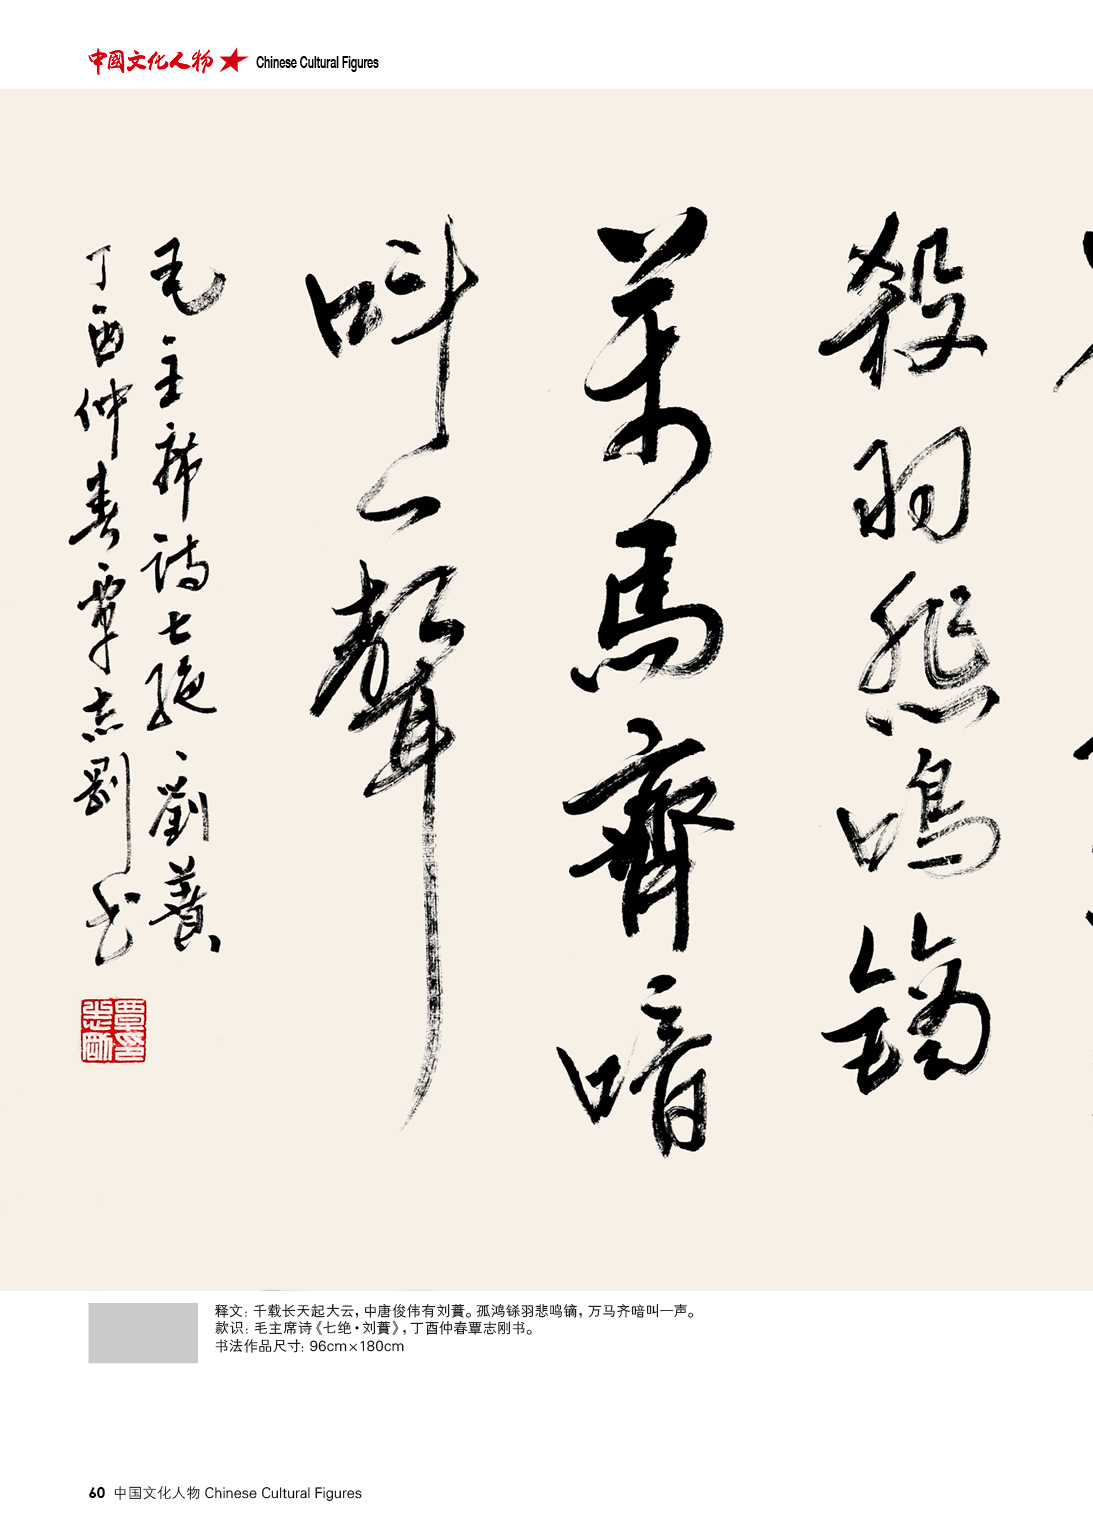 中國文化人物 Chinese Cultural Figures
殺羽悲鳴鏑
萬馬齊喑
叫一聲
毛主席詩七絕、劉蕡
丁酉仲春覃志剛书
释文：千载长天起大云，中唐俊伟有刘蕡。孤鸿铩羽悲鸣镝，万马齐喑叫一声。
款识：毛主席诗《七绝·刘蕡》，丁酉仲春覃志刚书。
书法作品尺寸：96cm×180cm
60 中国文化人物 Chinese Cultural Figures